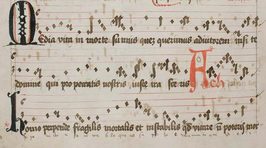 Media vita in morte sumus quem querimus adiutorem nisi te
domine qui pro peccatis nostris iuste irasceris Ach
homo perpende fragilis mortalis et instabilis quod vitare non poteris mortem